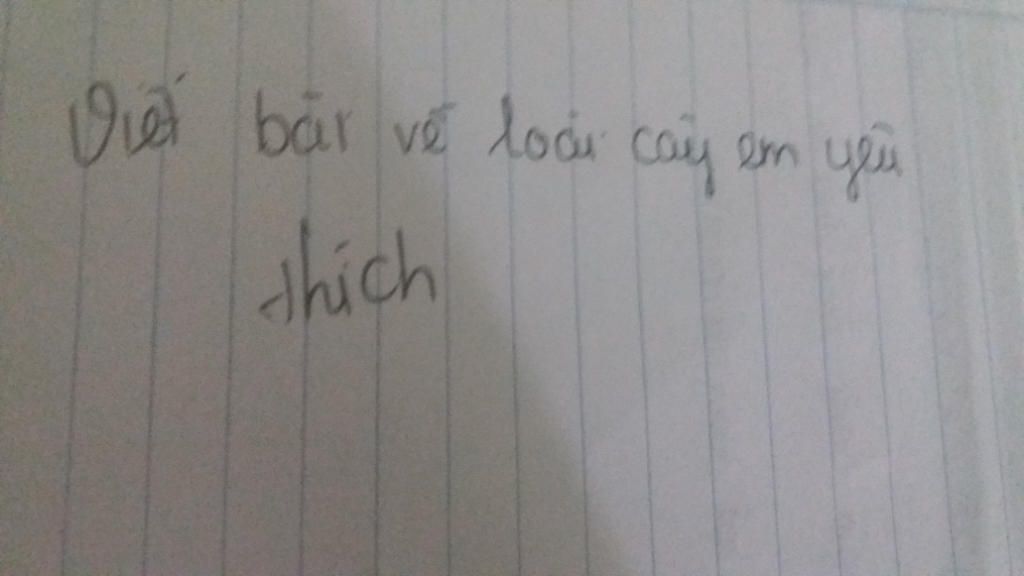 Viết bài về loài cây em yêu
thích